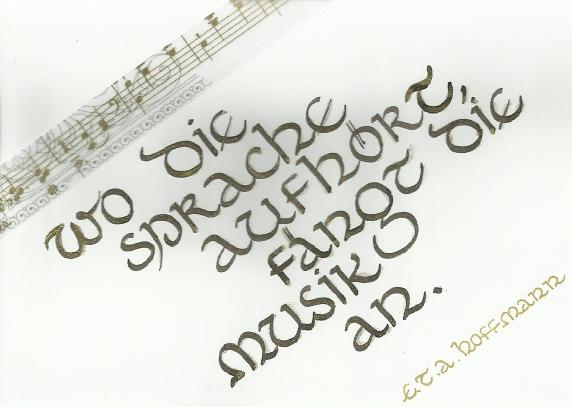 wo die
sprache
aufhört,
fängt die
musik
an.
e.t.a. hoffmann